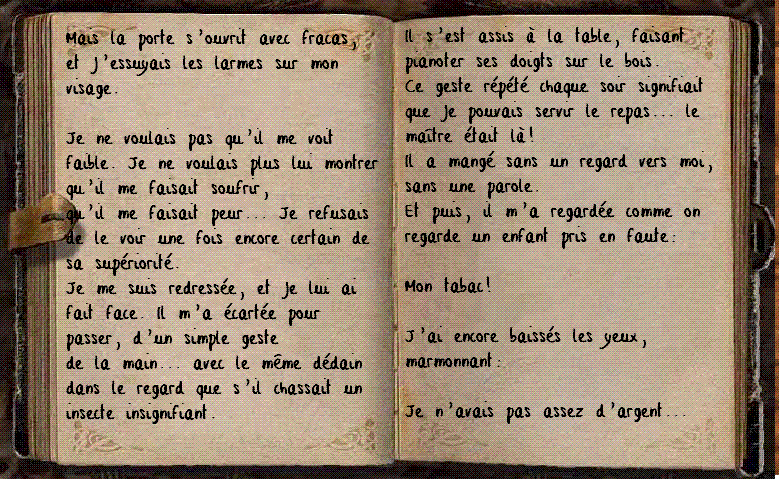 Mais la porte s'ouvrit avec fracas,
et j'essuyais les larmes sur mon
visage.
Je ne voulais pas qu'il me voit
faible. Je ne voulais plus lui montrer
qu'il me faisait souffrir,
qu'il me faisait peur... Je refusais
de le voir une fois encore certain de
sa supériorité.
Je me suis redressée, et je lui ai
fait face. Il m'a écartée pour
passer, d'un simple geste
de la main... avec le même dédain
dans le regard que s'il chassait un
insecte insignifiant.
Il s'est assis à la table, faisant
pianoter ses doigts sur le bois.
Ce geste répété chaque soir signifiait
que je pouvais servir le repas... le
maître était là!
Il a mangé sans un regard vers moi,
sans une parole.
Et puis, il m'a regardée comme on
regarde un enfant pris en faute:
Mon tabac!
J'ai encore baissés les yeux,
marmonnant:
Je n'avais pas assez d'argent...